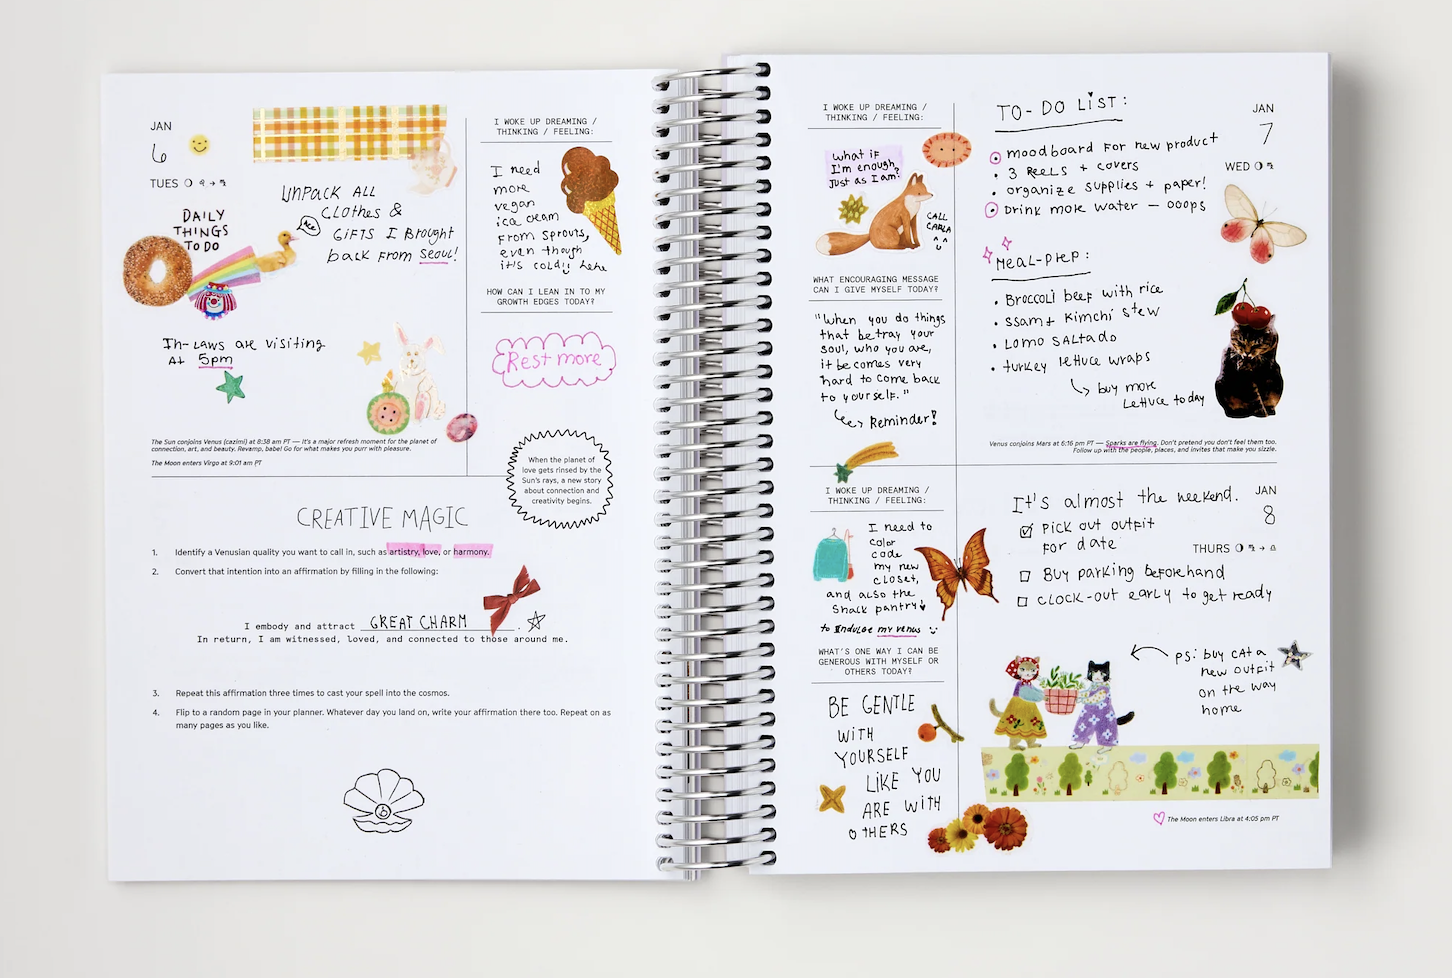 JAN
6
TUES
UNPACK ALL
CLOTHES &
GIFTS I BROUGHT
back FROM SEOUL!
DAILY
THINGS
TO DO
IN-LAWS are VISITING
AT 5pm
The Sun conjoins Venus (cazimi) at 8:38 am PT — It's a major refresh moment for the planet of
connection, art, and beauty. Revamp, babe! Go for what makes you purr with pleasure.
The Moon enters Virgo at 9:01 am PT
I WOKE UP DREAMING /
THINKING / FEELING:
I need
more
vegan
ice cream
From sprouts,
even though
it's cold!! hehe
HOW CAN I LEAN IN TO MY
GROWTH EDGES TODAY?
Rest more
When the planet of
love gets rinsed by the
Sun's rays, a new story
about connection and
creativity begins.
CREATIVE MAGIC
1. Identify a Venusian quality you want to call in, such as artistry, love, or harmony.
2. Convert that intention into an affirmation by filling in the following:
I embody and attract GREAT CHARM.
In return, I am witnessed, loved, and connected to those around me.
3. Repeat this affirmation three times to cast your spell into the cosmos.
4. Flip to a random page in your planner. Whatever day you land on, write your affirmation there too. Repeat on as
many pages as you like.
I WOKE UP DREAMING /
THINKING / FEELING:
What if
I'm enough,
Just as I am?
CALL
CARLA
WHAT ENCOURAGING MESSAGE
CAN I GIVE MYSELF TODAY?
"When you do things
that betray your
soul, who you are,
it becomes very
hard to come back
to yourself."
Reminder!
TO-DO LIST:
moodboard FOR new product
• 3 REELS + covers
• organize supplies + paper!
DRINK MORE WATER — OOOPS
JAN
7
WED
MEAL-PREP:
• BROCCOLI beef with rice
• SSAM + KIMCHI STEW
• LOMO SALTADO
• turkey lettuce wraps
buy more
Lettuce today
Venus conjoins Mars at 6:16 pm PT — Sparks are flying. Don't pretend you don't feel them too.
Follow up with the people, places, and invites that make you sizzle.
I WOKE UP DREAMING /
THINKING / FEELING:
I need to
color
code
my new
closet,
and also the
snack pantry!
to INDULGE my venus
WHAT'S ONE WAY I CAN BE
GENEROUS WITH MYSELF OR
OTHERS TODAY?
BE GENTLE
WITH
YOURSELF
LIKE YOU
ARE WITH
OTHERS
It's almost the weekend.
PICK OUT OUTFIT
FOR date
BUY PARKING beforehand
CLOCK-OUT early to get ready
JAN
8
THURS
PS: buy cat a
new outfit
on the way
home
The Moon enters Libra at 4:05 pm PT